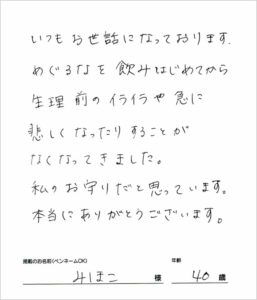 いつもお世話になっております.
めぐるなを飲みはじめてから
生理前のイライラや急に
悲しくなったりすることが
なくなってきました。
私のお守りだと思っています。
本当にありがとうございます。
掲載のお名前(ペンネームOK) 年齢
みほこ 様 40 歳